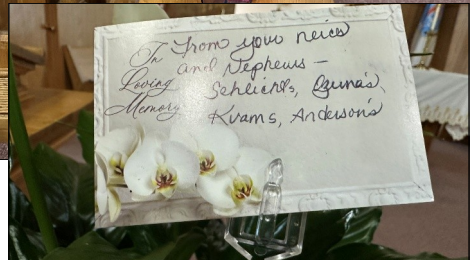 In
Loving
Memory
From your neics
and Nephews —
Schleichls, Ozuna's,
Kvams, Anderson's